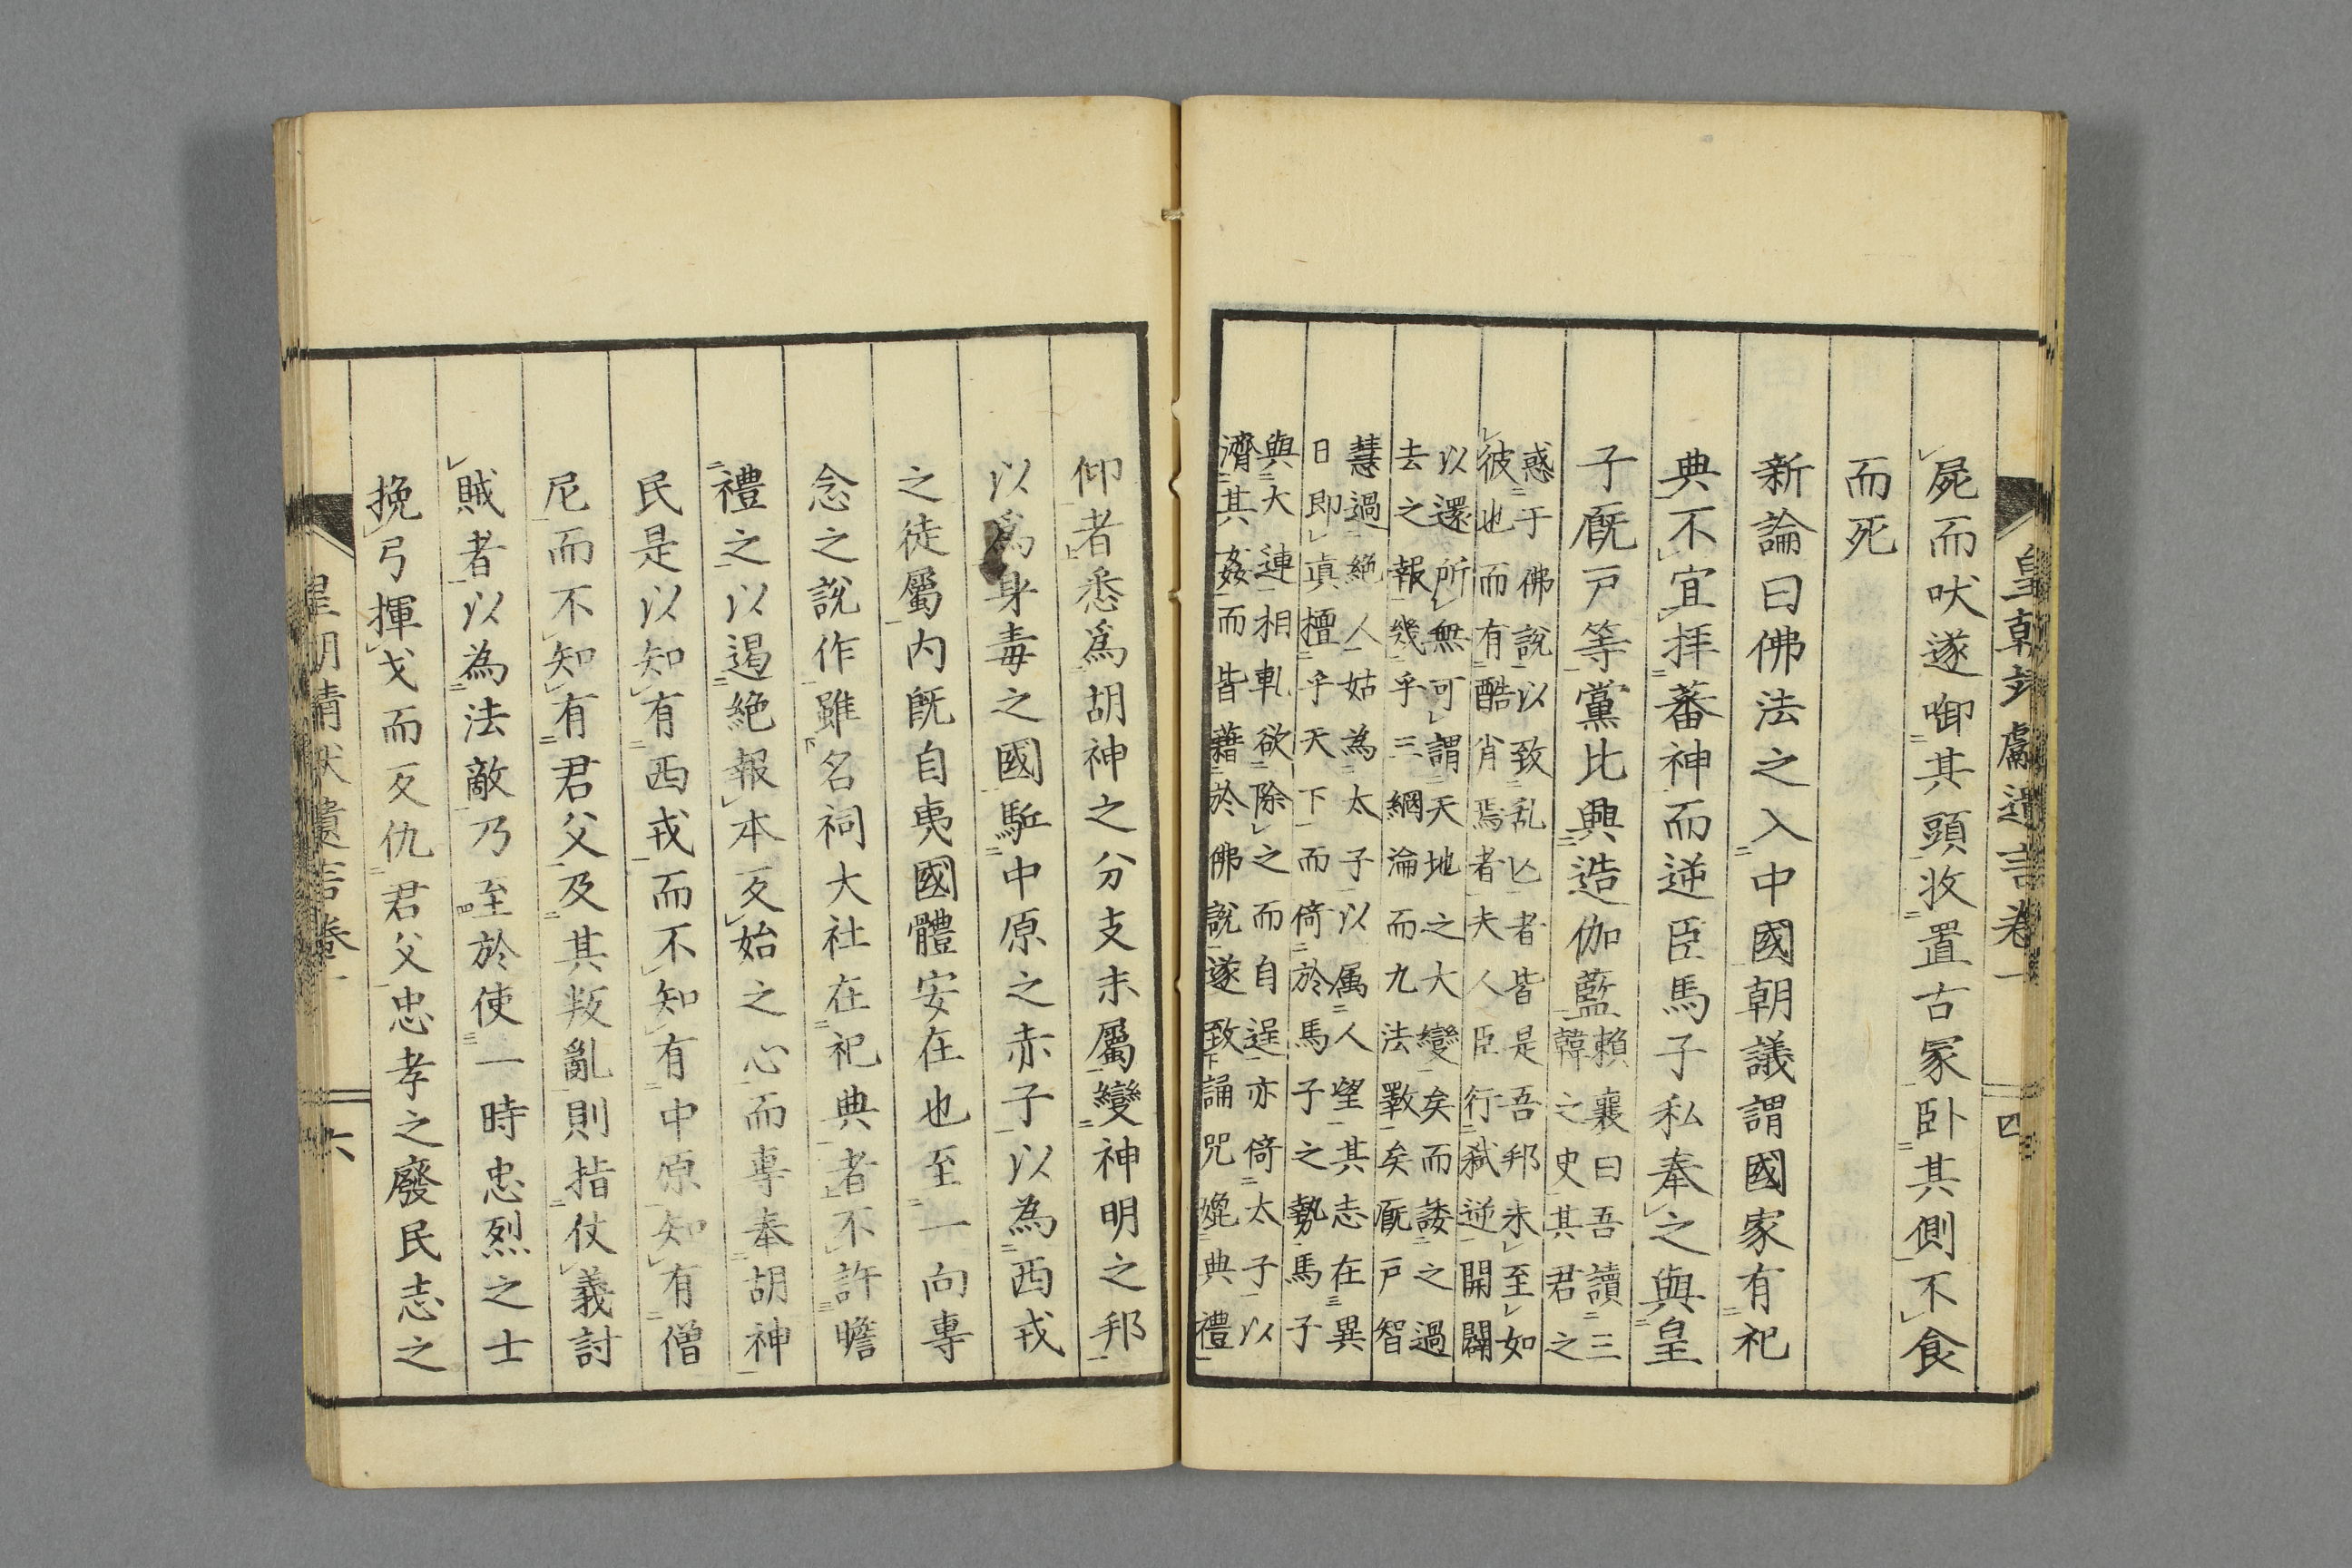 屍而吠遂啣其頭收置古冢卧其側不食
而死
新論曰佛法之入中國朝議謂國家有祀
典不宜拝蕃神而逆臣馬子私奉之與皇
子厩戸等黨比興造伽藍
賴襄曰吾讀三
韓之史其君之
惑于佛說以致乱亾者皆是吾邦未至如
彼也而有酷肖焉者夫人臣行弑逆開闢
以還所無可謂天地之大變矣而諉之過
去之報幾乎三綱淪而九法斁矣厩戸智
慧過絶人姑為太子以属人望其志在異
日即眞擅乎天下而倚於馬子之勢馬子
與大連相軋欲除之而自逞亦倚太子以
濟其姦而皆藉於佛說遂致誦咒㛯典禮
皇朝
遺言卷一
四
仰者悉爲胡神之分支末屬變神明之邦
以爲身毒之國駈中原之赤子以為西戎
之徒屬内旣自夷國體安在也至一向專
念之說作雖名祠大社在祀典者不許瞻
禮之以遏絶報本反始之心而專奉胡神
民是以知有西戎而不知有中原知有僧
尼而不知有君父及其叛亂則指仗義討
賊者以為法敵乃至於使一時忠烈之士
挽弓揮戈而反仇君父忠孝之廢民志之
遺言卷一
六